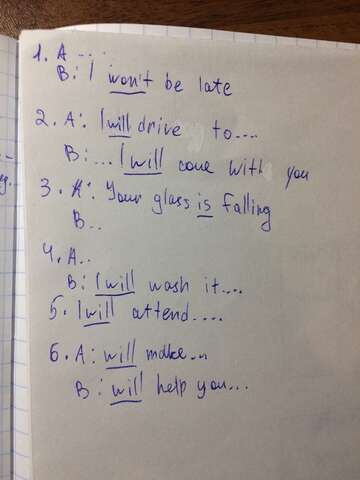 1. A ....
B: I won't be late
2. A: I will drive to....
B: ... I will come with you
3. A: Your glass is falling
B..
4. A..
B: I will wash it....
5. I will attend....
6. A: will make...
B: will help you...